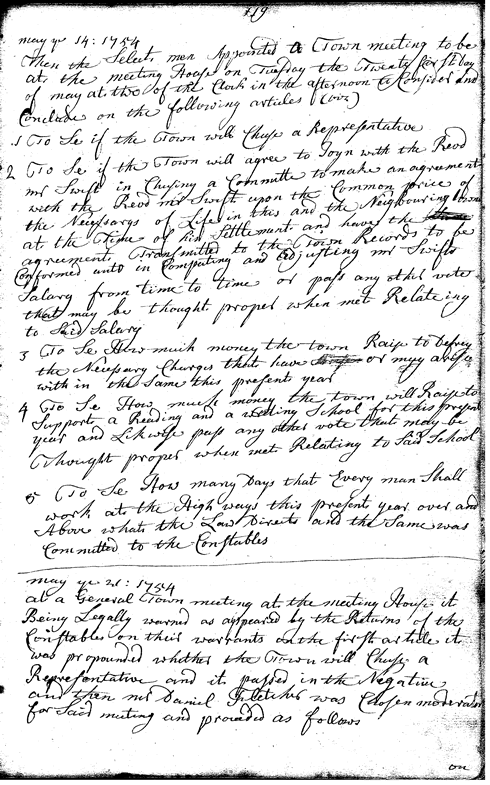 119
may ye 14: 1754
Then the Select men Appointed a Town meeting to be
at the meeting House on Tuesday the Twenty first Day
of may at two of the Clock in the afternoon to Consider and
Conclude on the following articles (viz)
1 To Se if the Town will Chuse a Representative
2 To Se if the Town will agree to Joyn with the Revd
mr Swift in Chusing a Committe to make an agreement
with the Revd mr Swift upon the Common price of
the Necessarys of Life in this and the Neighbouring towns
at the Time of his Settlement and have the
agreement Transmitted to the Town Records to be
Conformed unto in Computing and adjusting mr Swifts
Salary from time to time or pass any other vote
that may be thought proper when met Relateing
to Said Salary
3 To Se How much money the town Raise to Defrey
the Necessary Charges that have or may arise
with in the Same this present year
4 To Se How much money the town will Raise to
Support a Reading and a writing School for this present
year and Likwise pass any other vote that may be
Thought proper when met Relating to Said School
5 To Se How many Days that Every man Shall
work at the High ways this present year over and
Above what the Law Directs and the Same was
Committed to the Constables
may ye 21: 1754
at a General Town meeting at the meeting House it
Being Legally warned as appeared by the Returns of the
Constables on their warrants on the first article it
was propounded whether the Town will Chuse a
Representative and it passed in the Negative
and then mr Daniel Fletcher was Chosen moderator
for Said meeting and proceded as follows
on